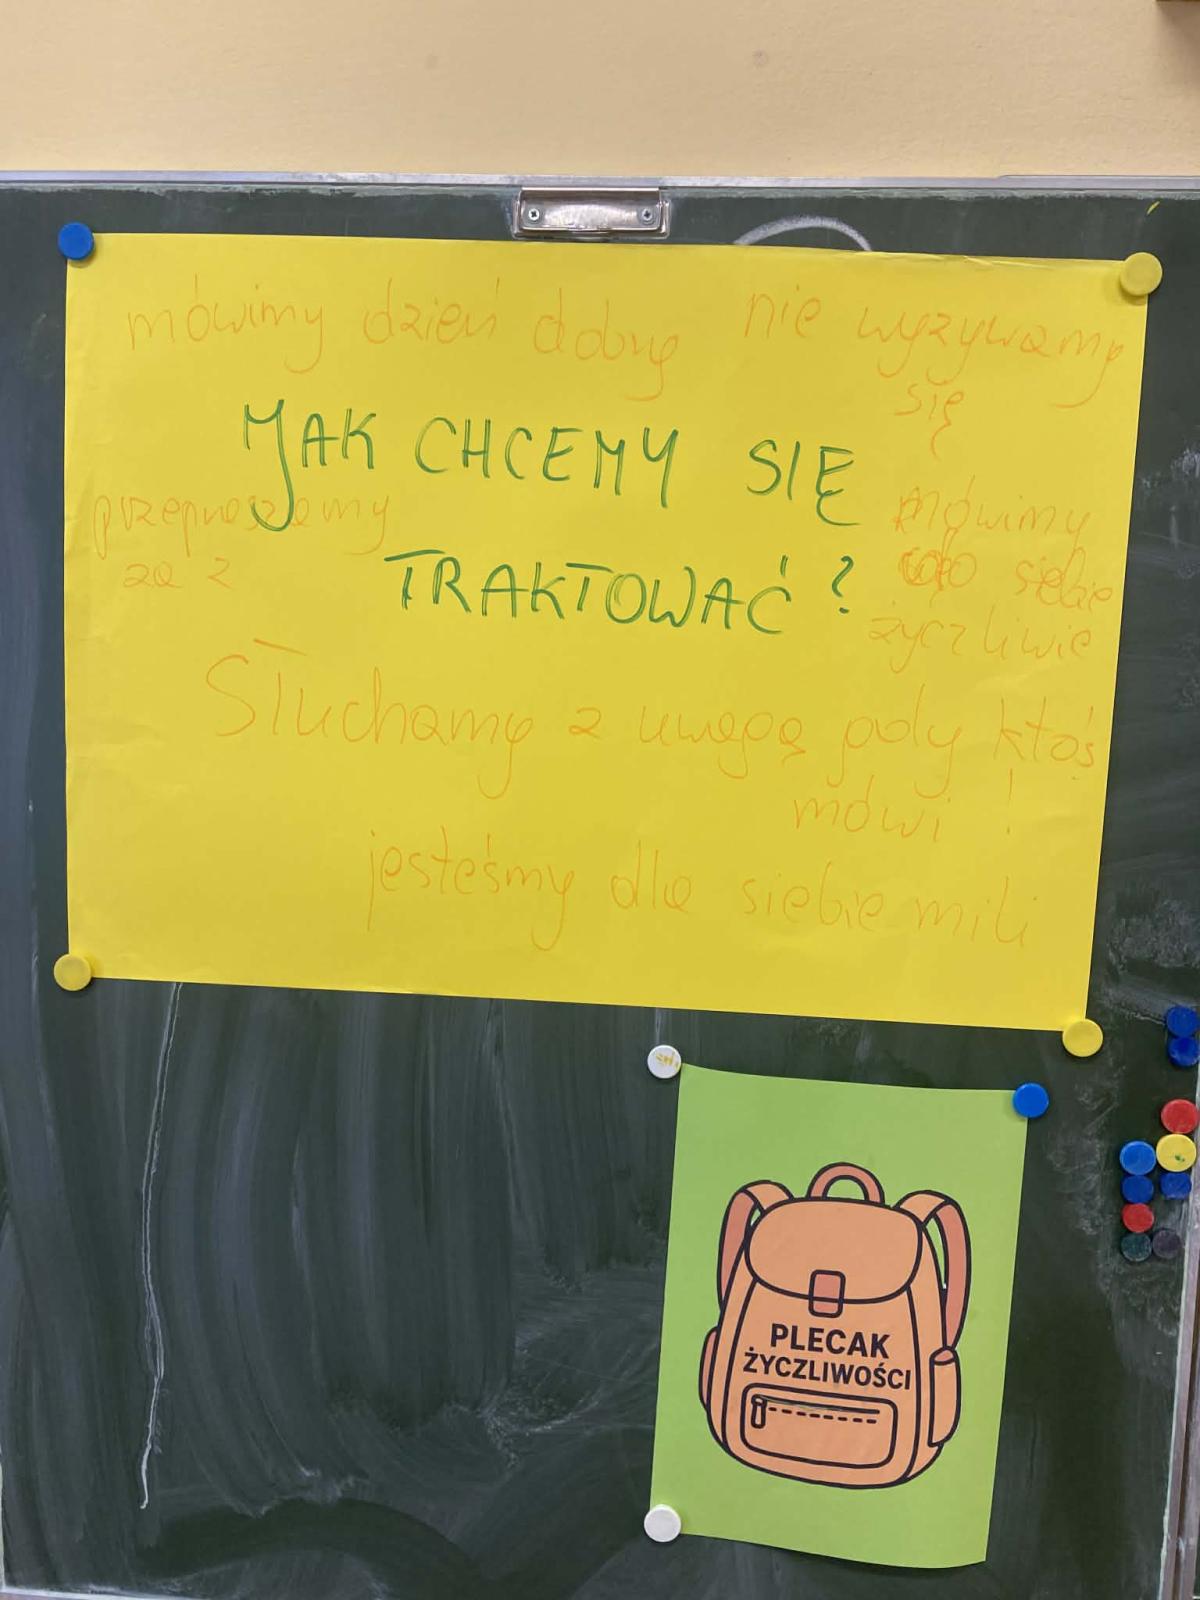 mówimy dzień dobry
nie wyzywamy
się
JAK CHCEMY SIĘ
TRAKTOWAĆ?
przepraszamy
mówimy
do siebie
życzliwie
Słuchamy z uwagą gdy ktoś
mówi !
jesteśmy dla siebie mili
PLECAK
ŻYCZLIWOŚCI